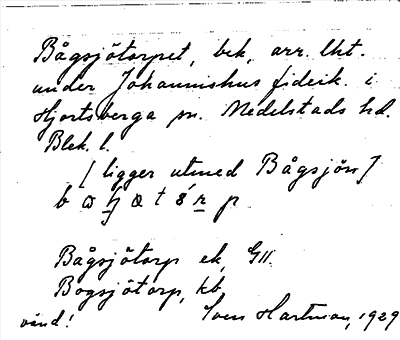 Bågsjötorpet, bek, arr. lht.
under Johannishus fideik. i
Hjortsberga sn. Medelstads hd.
Blek. l.
[ligger utmed Bågsjön]
Bågsjötorp ek, GII.
Bogsjötorp, kb.
vänd! Sven Hartman, 1929